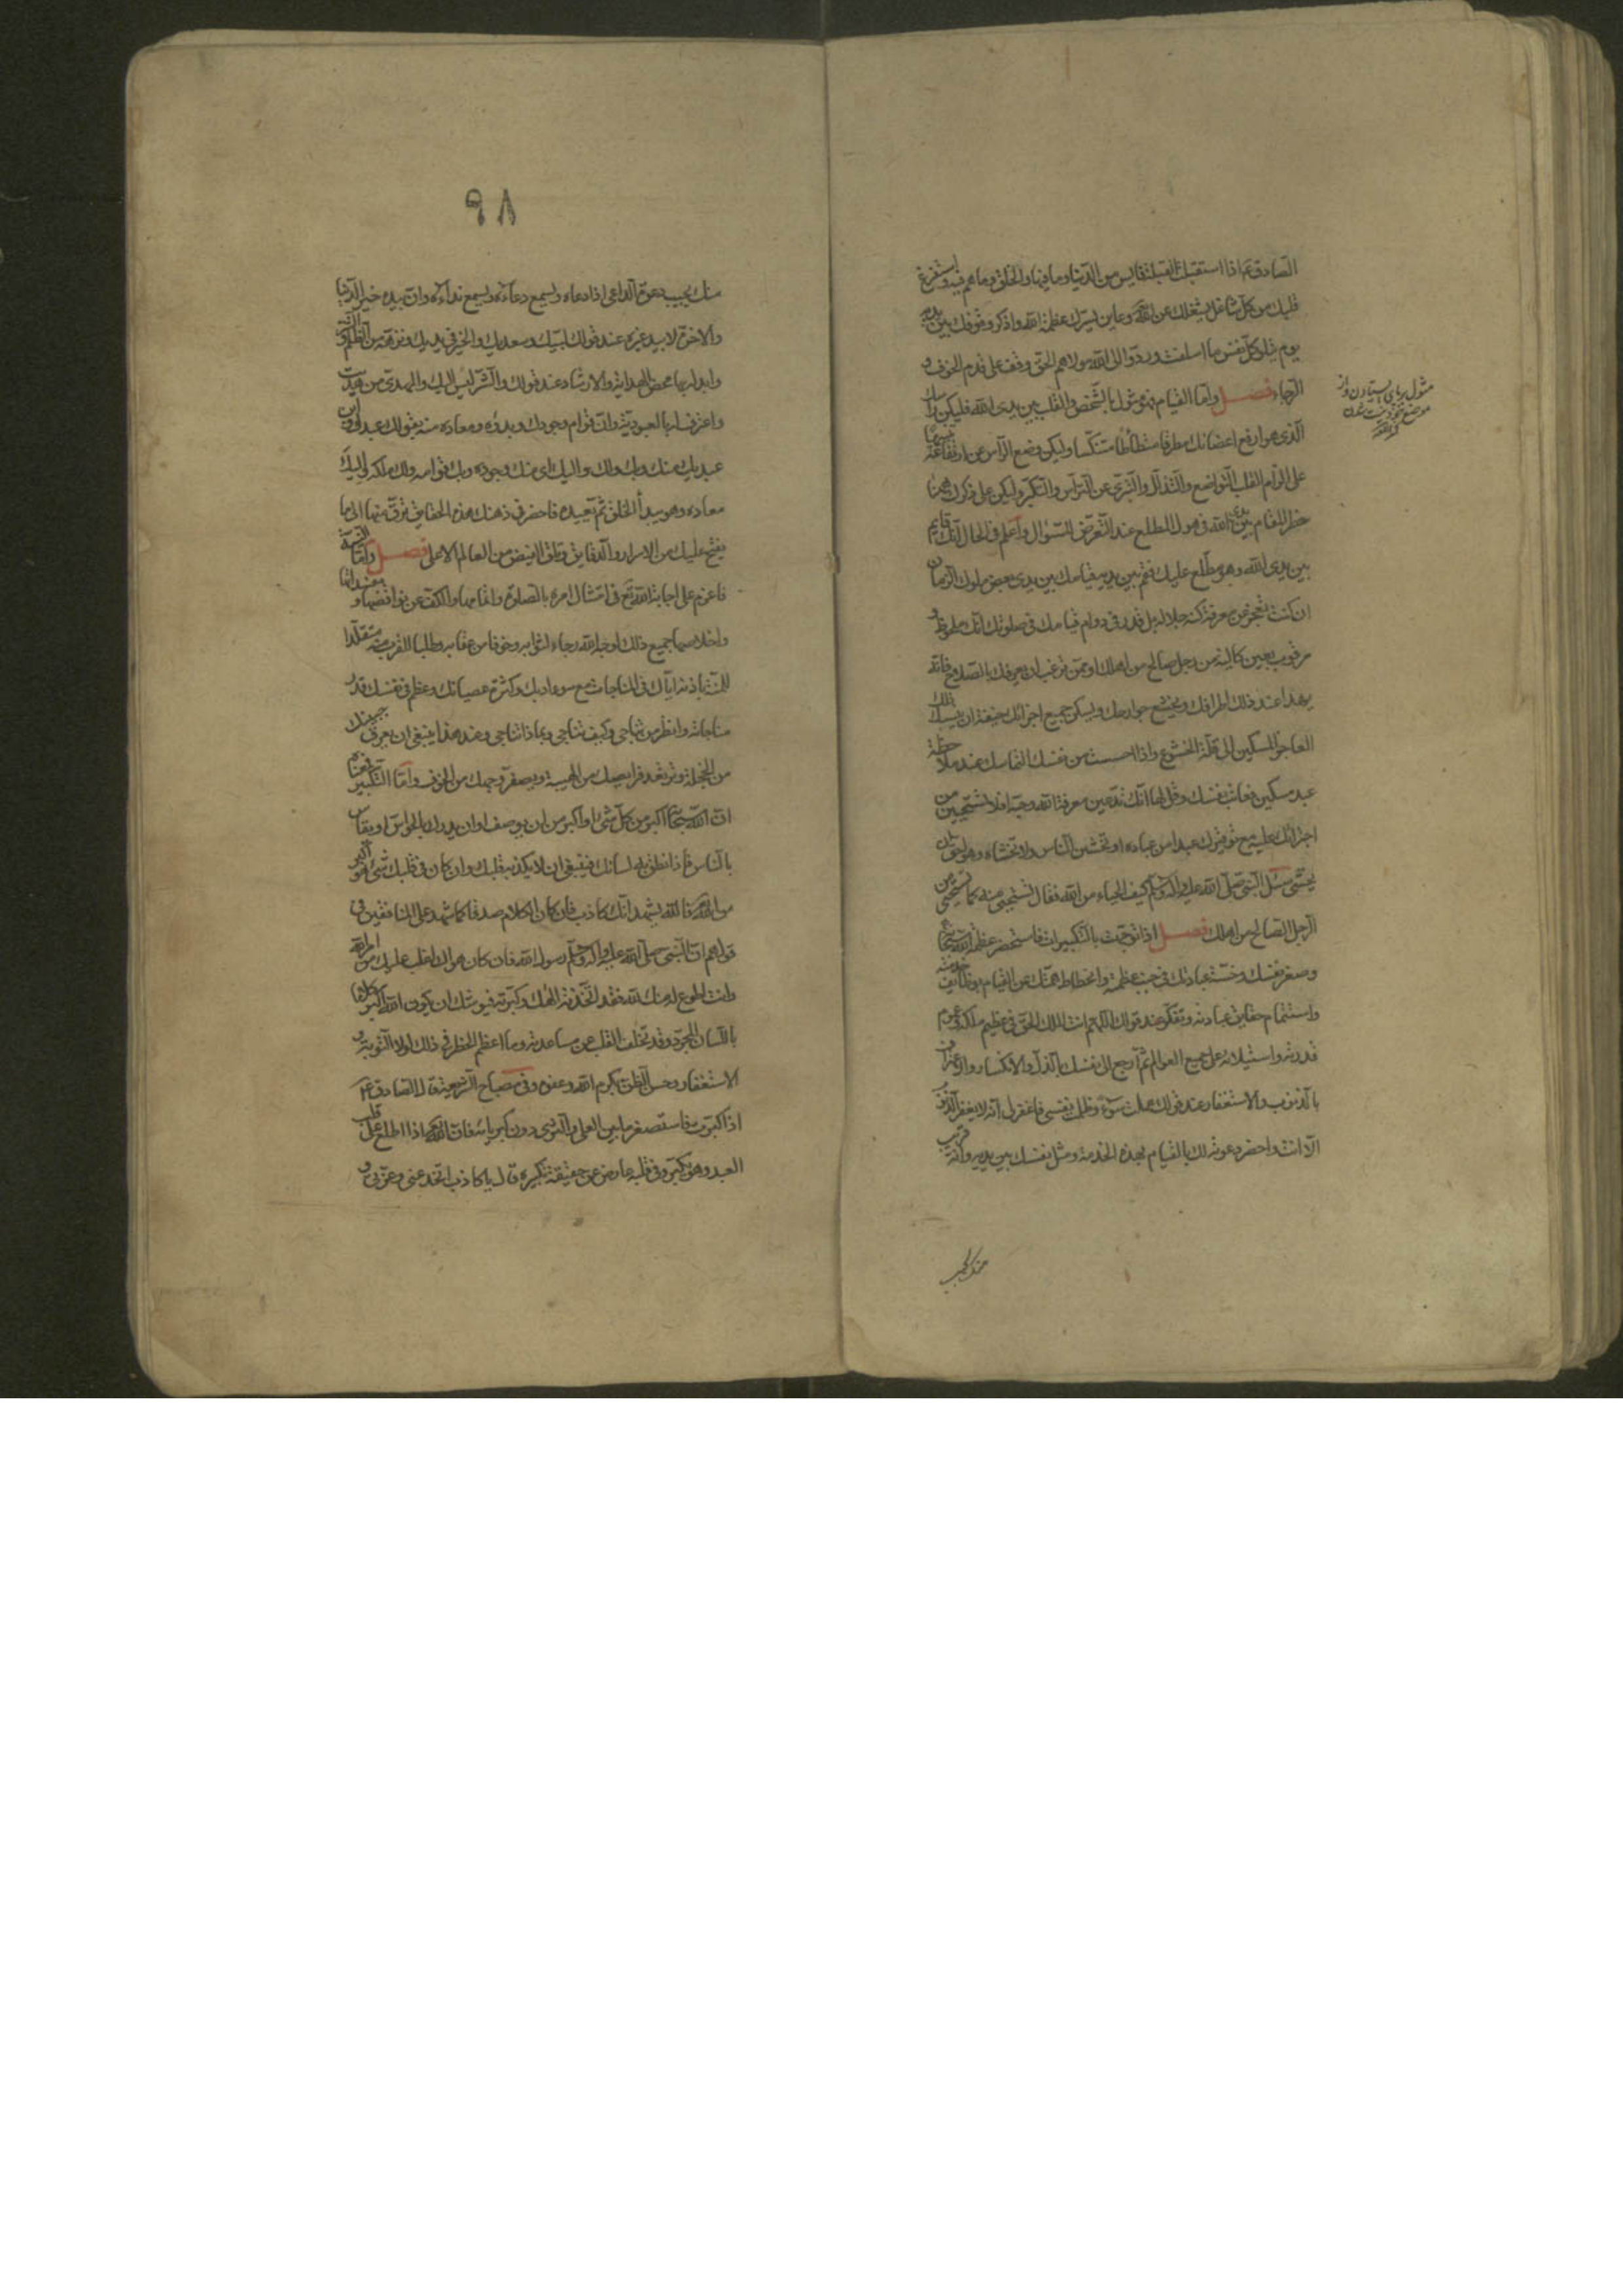 الصادق ع اذا استقبلت القبلة فايس من الدنيا وما فيها والخلق وما هم فيه واستفرغ
قلبك من كل شاغل يشغلك عن الله تع وعاين بسرك عظمة الله واذكر وقوفك بين يديه
يوم تبلو كل نفس ما اسلفت وردوا الى الله مولاهم الحق وقف على قدم الخوف و
الرجاء فصل واما القيام فهو مثول بالشخص والقلب بين يدى الله فليكن راسك
الذى هو ارفع اعضائك مطرقا متطاطئا متنكسا وليكن وضع الرأس عن ارتفاعه تنبيها
على الزام القلب التواضع والتذلل والتبرى عن التراس والتكبر وليكن على ذكرك ههنا
خطر المقام بين يدى الله فى هول المطلع عند التعرض للسؤال واعلم فى الحال انك قايم
بين يدى الله وهو مطلع عليك فقم بين يديه قيامك بين يدى بعض ملوك الزمان
ان كنت تعجز عن معرفة كنه جلاله بل قدر فى دوام قيامك فى صلوتك انك ملحوظ و
مرقوب بعين كالئة من رجل صالح من اهلك او ممن ترغب ان يعرفك بالصلاح فانه
يهدا عند ذلك اطرافك ويخشع جوارحك ويسكن جميع اجزائك خيفة ان ينسبك ذلك
العاجز المسكين الى قلة الخشوع واذا احسست من نفسك التماسك عند ملاحظة
عبد مسكين فعاتب نفسك وقل لها انك تدعين معرفة الله وحبه افلا تستحيين من
اجترائك عليه مع توقيرك عبدا من عباده او تخشين الناس ولا تخشاه وهو احق ان
يخشى سئل النبى صلى الله عليه واله وسلم كيف الحياء من الله فقال تستحيى منه كما تستحيى من
الرجل الصالح من اهلك فصل اذا توجهت بالتكبيرات فاستحضر عظمة الله سبحانه
وصغر نفسك وخسة عبادتك فى جنب عظمته وانحطاط همتك عن القيام بوظايف خدمته
واستتمام حقايق عبادته وتفكر عند قولك اللهم انت الملك الحق فى عظيم ملكه وعموم
قدرته واستيلائه على جميع العوالم ثم ارجع الى نفسك بالذل والانكسار والاعتراف
بالذنوب والاستغفار عند قولك عملت سوءً وظلمت نفسى فاغفر لى انه لا يغفر الذنوب
الا انت واحضر دعوته لك بالقيام بهذه الخدمة ومثل نفسك بين يديه وانه قريب
مثول بر پاى ايستادن و از
موضع خود
منك يجيب
٩٨
منك يجيب دعوة الداعى اذا دعاه ويسمع دعاءه ويسمع نداءه وان بيده خير الدنيا
والاخرة لا بيد غيره عند قولك لبيك وسعديك والخير فى يديك ونزهه من الظلم و
وابدله بها محض الهداية والارشاد عند قولك والشر ليس اليك والمهدى من هديت
واعترف له بالعبودية وان قوام وجودك وبدؤه ومعاده منه بقولك عبدك وابن
عبديك منك وبك ولك واليك اى منك وجوده وبك قوامه ولك ملكه واليك
معاده وهو يبدأ الخلق ثم يعيده فاحضر فى ذهنك هذه الحقايق وترق منها الى ما
يفتح عليك من الاسرار والدقايق وتلق الفيض من العالم الاعلى فصل واما النية
فاعزم على اجابة الله تع فى امتثال امره بالصلوة واتمامها والكف عن نواقضها و مفسداتها
واخلاصها جميع ذلك لوجه الله رجاء لثوابه وخوفا من عقابه وطلبا للقرب منه متقلدا
للمنة باذنه اياك فى المناجات مع سوء ادبك وكثرة عصيانك وعظم فى نفسك قدر
مناجاته وانظر من تناجى وكيف تناجى وبماذا تناجى وعند هذا ينبغى ان يعرق جبينك
من الخجلة وترتعد فرايصك من الهيبة ويصفر وجهك من الخوف واما التكبير فمعناه
ان الله سبحانه اكبر من كل شئ او اكبر من ان يوصف او ان يدرك بالحواس او يقاس
بالناس فاذا نطق به لسانك فينبغى ان لا يكذبه قلبك وان كان فى قلبك شئ هو اكبر
من الله تع فالله يشهد انك كاذب فان كان الكلام صدقا كما شهد على المنافقين فى
قولهم ان النبى صلى الله عليه واله وسلم رسول الله فان كان هواك اغلب عليك من امر الله
وانت اطوع له منك لله فقد اتخذته الهك وكبرته فيوشك ان يكون الله اكبر كلاما
باللسان المجرد وقد تخلف القلب عن مساعدته وما اعظم الخطر فى ذلك لولا التوبة و
الاستغفار وحسن الظن بكرم الله وعفوه وفى مصباح الشريعة قال الصادق ع
اذا كبرت فاستصغر ما بين العلى والثرى دون كبريائه فان الله تع اذا اطلع على قلب
العبد وهو يكبر وفى قلبه عارض عن حقيقة تكبيره قال يا كاذب اتخدعنى وعزتى و